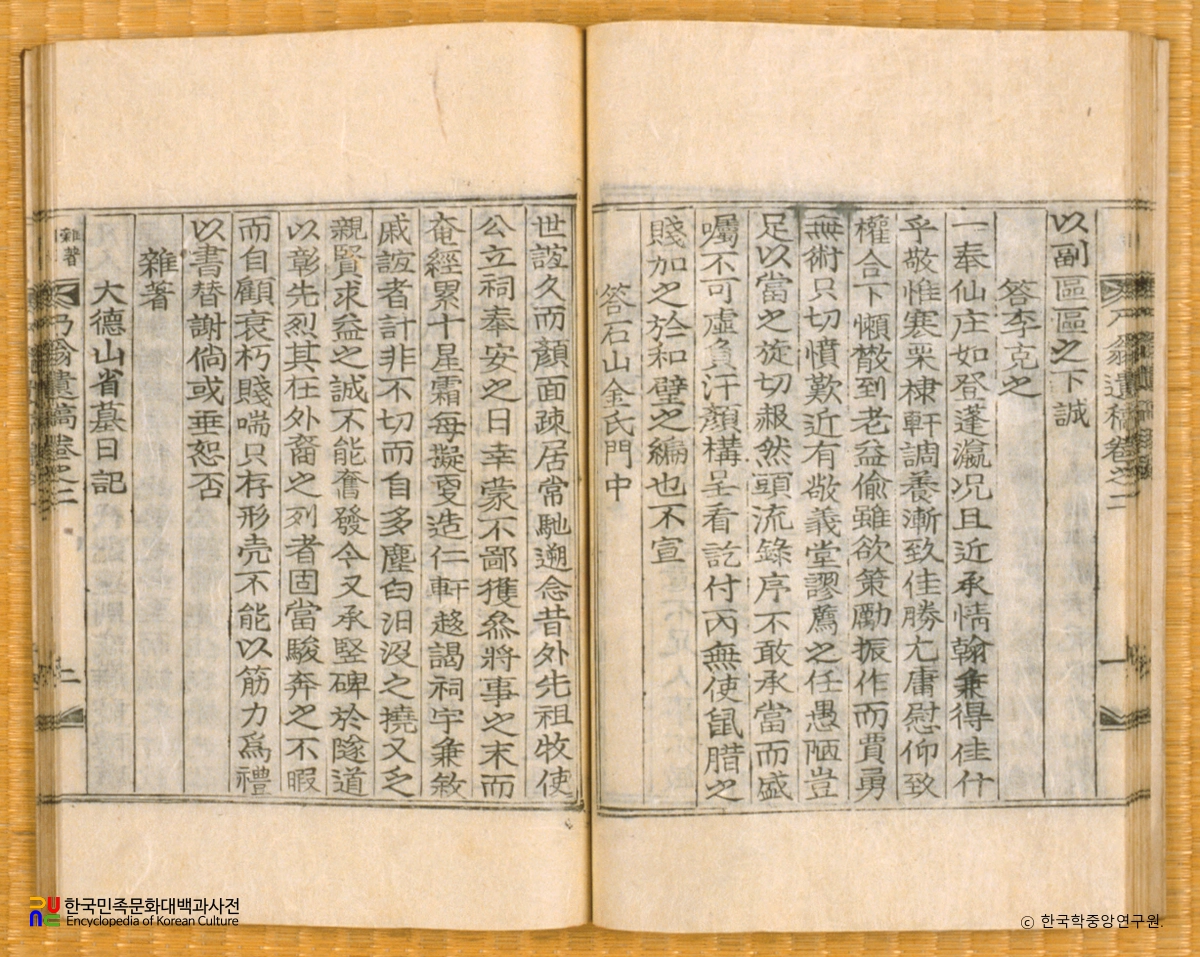 以副區區之下誠
答李克之
一奉仙庄如登蓬瀛况且近承情翰兼得佳什
乎敬惟寒栗棣軒調養漸致佳勝尤庸慰仰致
權合下懶散到老益偸雖欲策勵振作而賈勇
無術只切憤歎近有敬義堂謬薦之任愚陋豈
足以當之旋切赧然頭流錄序不敢承當而盛
囑不可虛負汗顔構呈看訖付丙無使鼠腊之
賤加之於和璧之編也不宣
答石山金氏門中
世誼久而顏面疎居常馳遡念昔外先祖牧使
公立祠奉安之日幸蒙不鄙獲叅將事之末而
奄經累十星霜每擬更造仁軒趍謁祠宇兼敘
戚誼者計非不切而自多塵臼汩沒之撓又乏
親賢求益之誠不能奮發今又承竪碑於隧道
以彰先烈其在外裔之列者固當駿奔之不暇
而自顧衰朽賤喘只存形壳不能以筋力爲禮
以書替謝倘或垂恕否
雜著
大德山省墓日記
雜著
乃翁遺稿卷之二
二
遺稿卷之二
一
한국민족문화대백과사전
Encyclopedia of Korean Culture
ⓒ 한국학중앙연구원.